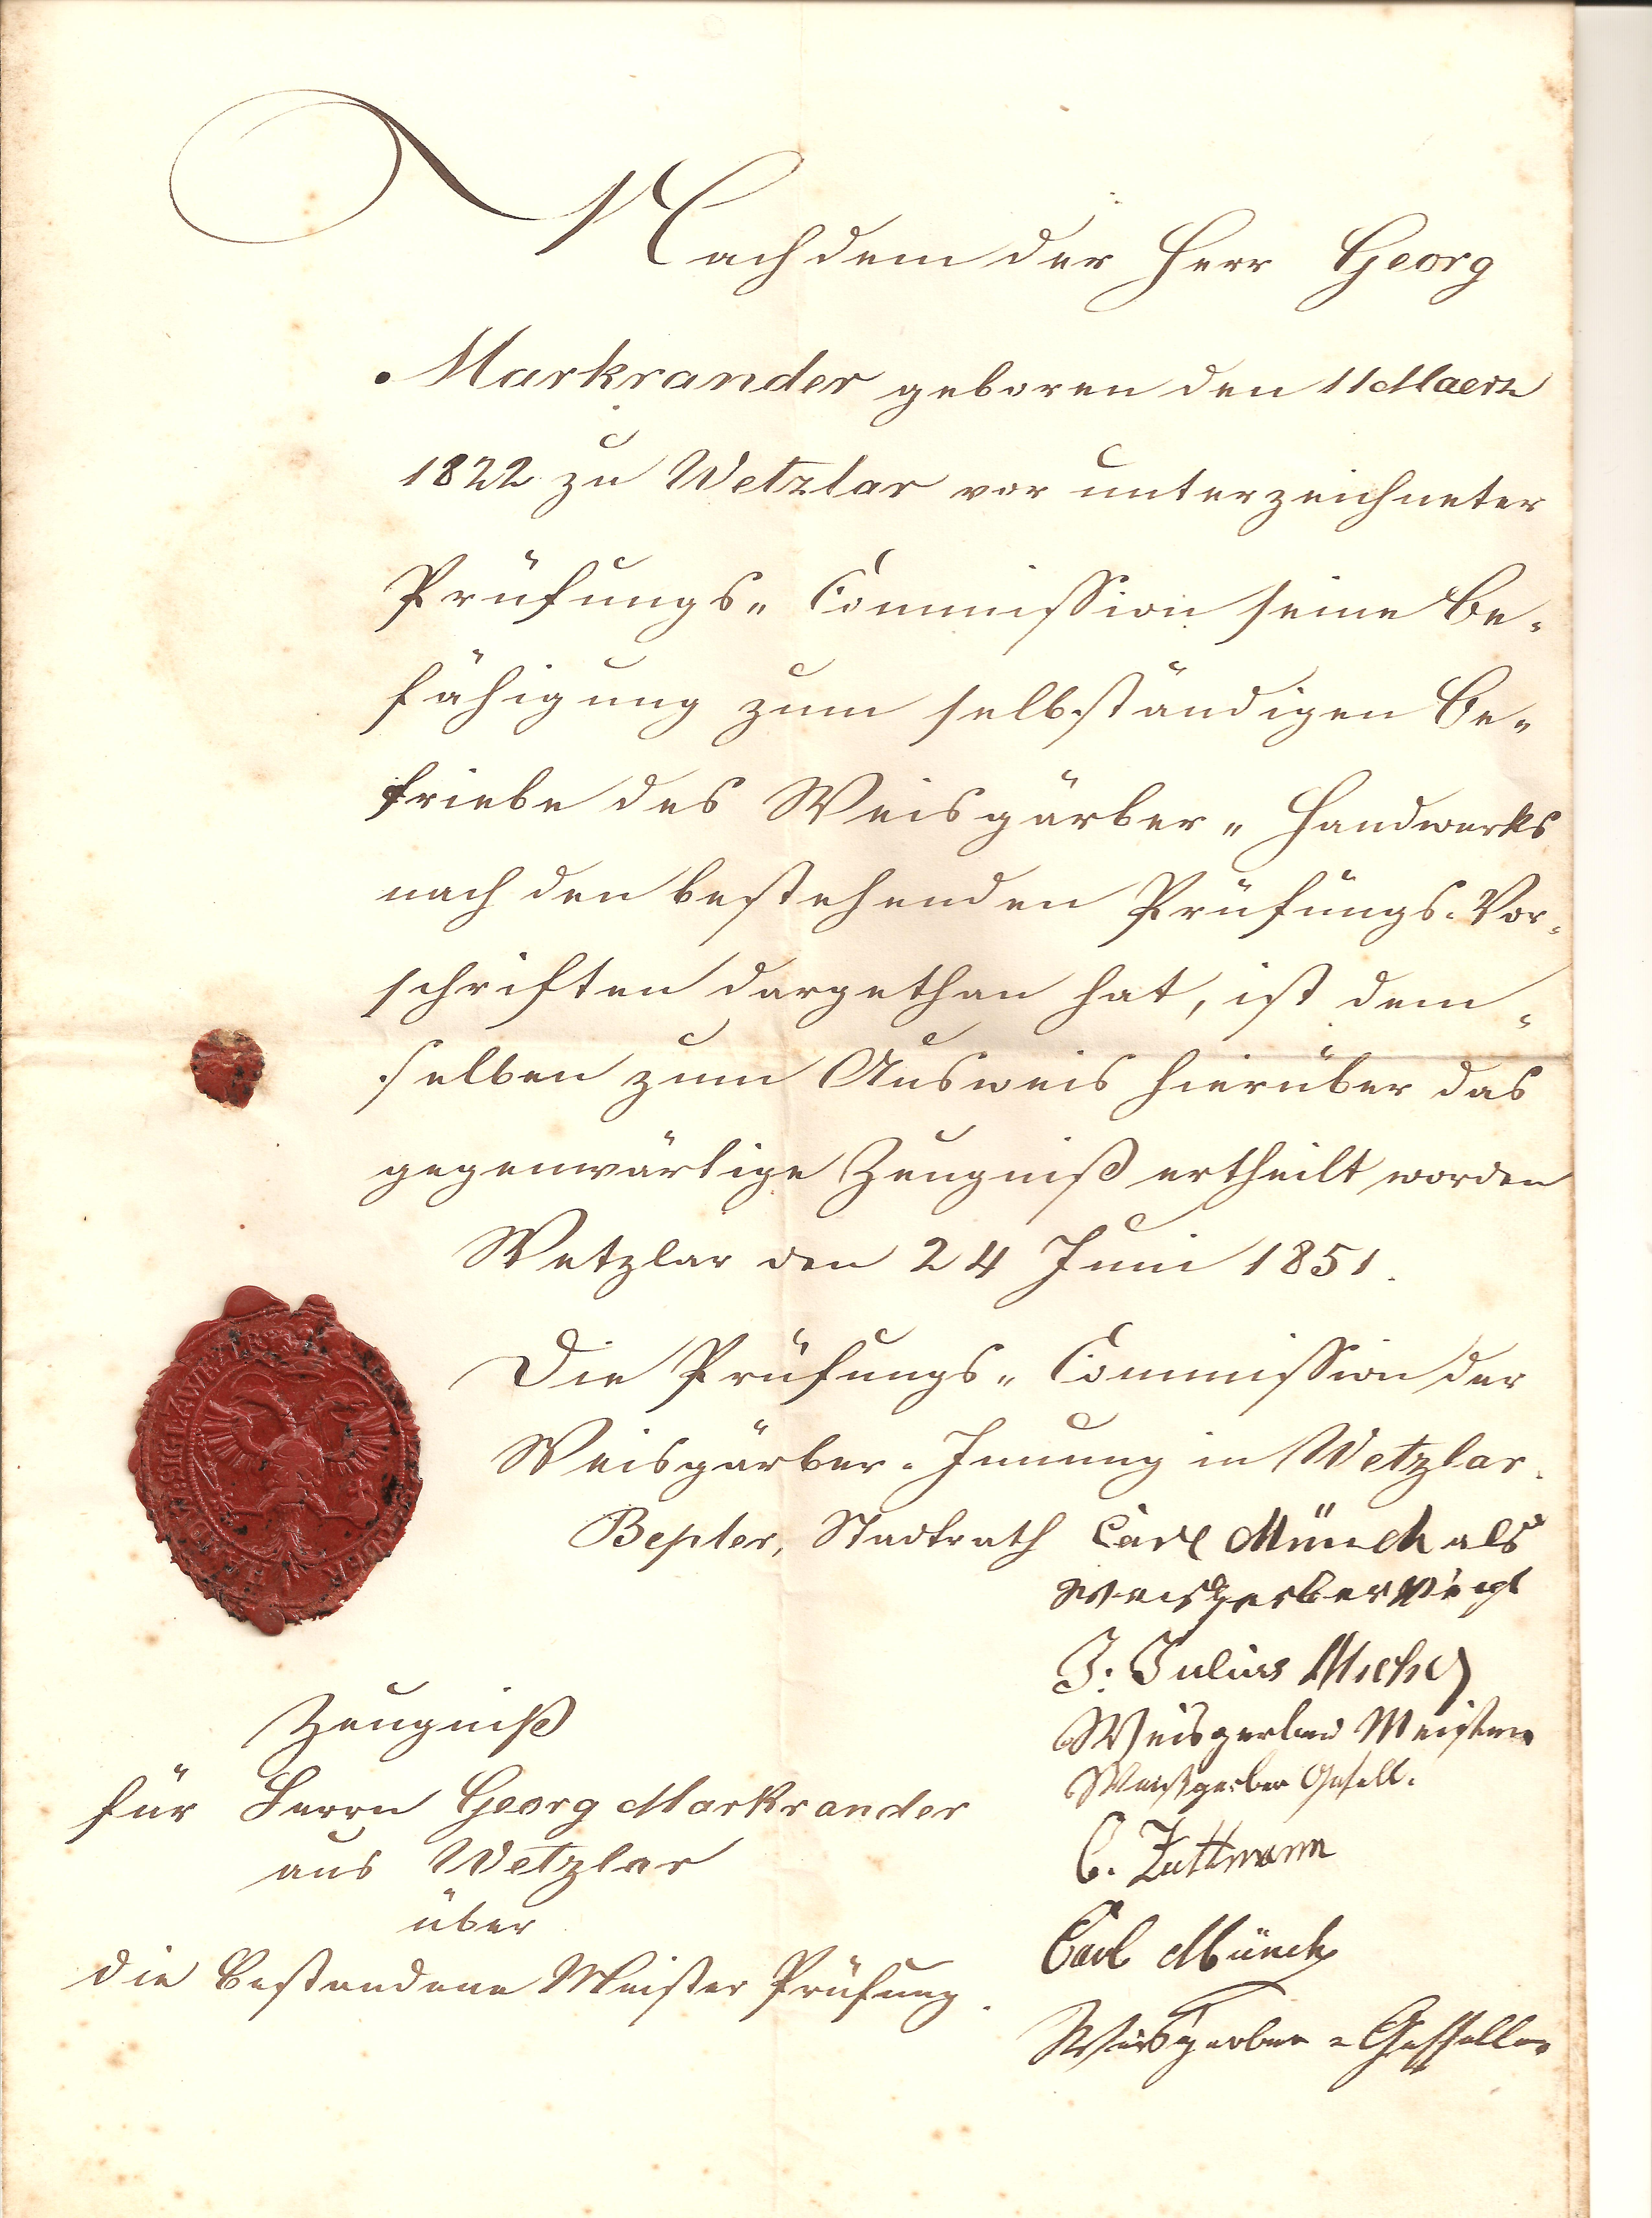 Nachdem der Herr Georg
Markrander geboren den 11 Maerz
1822 zu Wetzlar vor unterzeichneter
Prüfungs„ Commission seine Be„
fähigung zum selbständigen Be„
triebe des Weisgärber „ Handwerks
nach den bestehenden Prüfungs„Vor„
schriften dargethan hat, ist dem„
selben zum Ausweis hierüber das
gegenwärtige Zeugniß ertheilt worden
Wetzlar den 24 Juni 1851.
Die Prüfungs„ Commission der
Weisgärber„Innung in Wetzlar.
Bepler, Stadtrath
Carl Münch als
J. Julius Michel
Weisgerber Meister
Weisgerber Gesell.
C. Zuttmann
Carl Münch
Weisgerber „ Gesselle
Zeugniß
für Herrn Georg Markrander
aus Wetzlar
über
die bestandene Meister Prüfung.